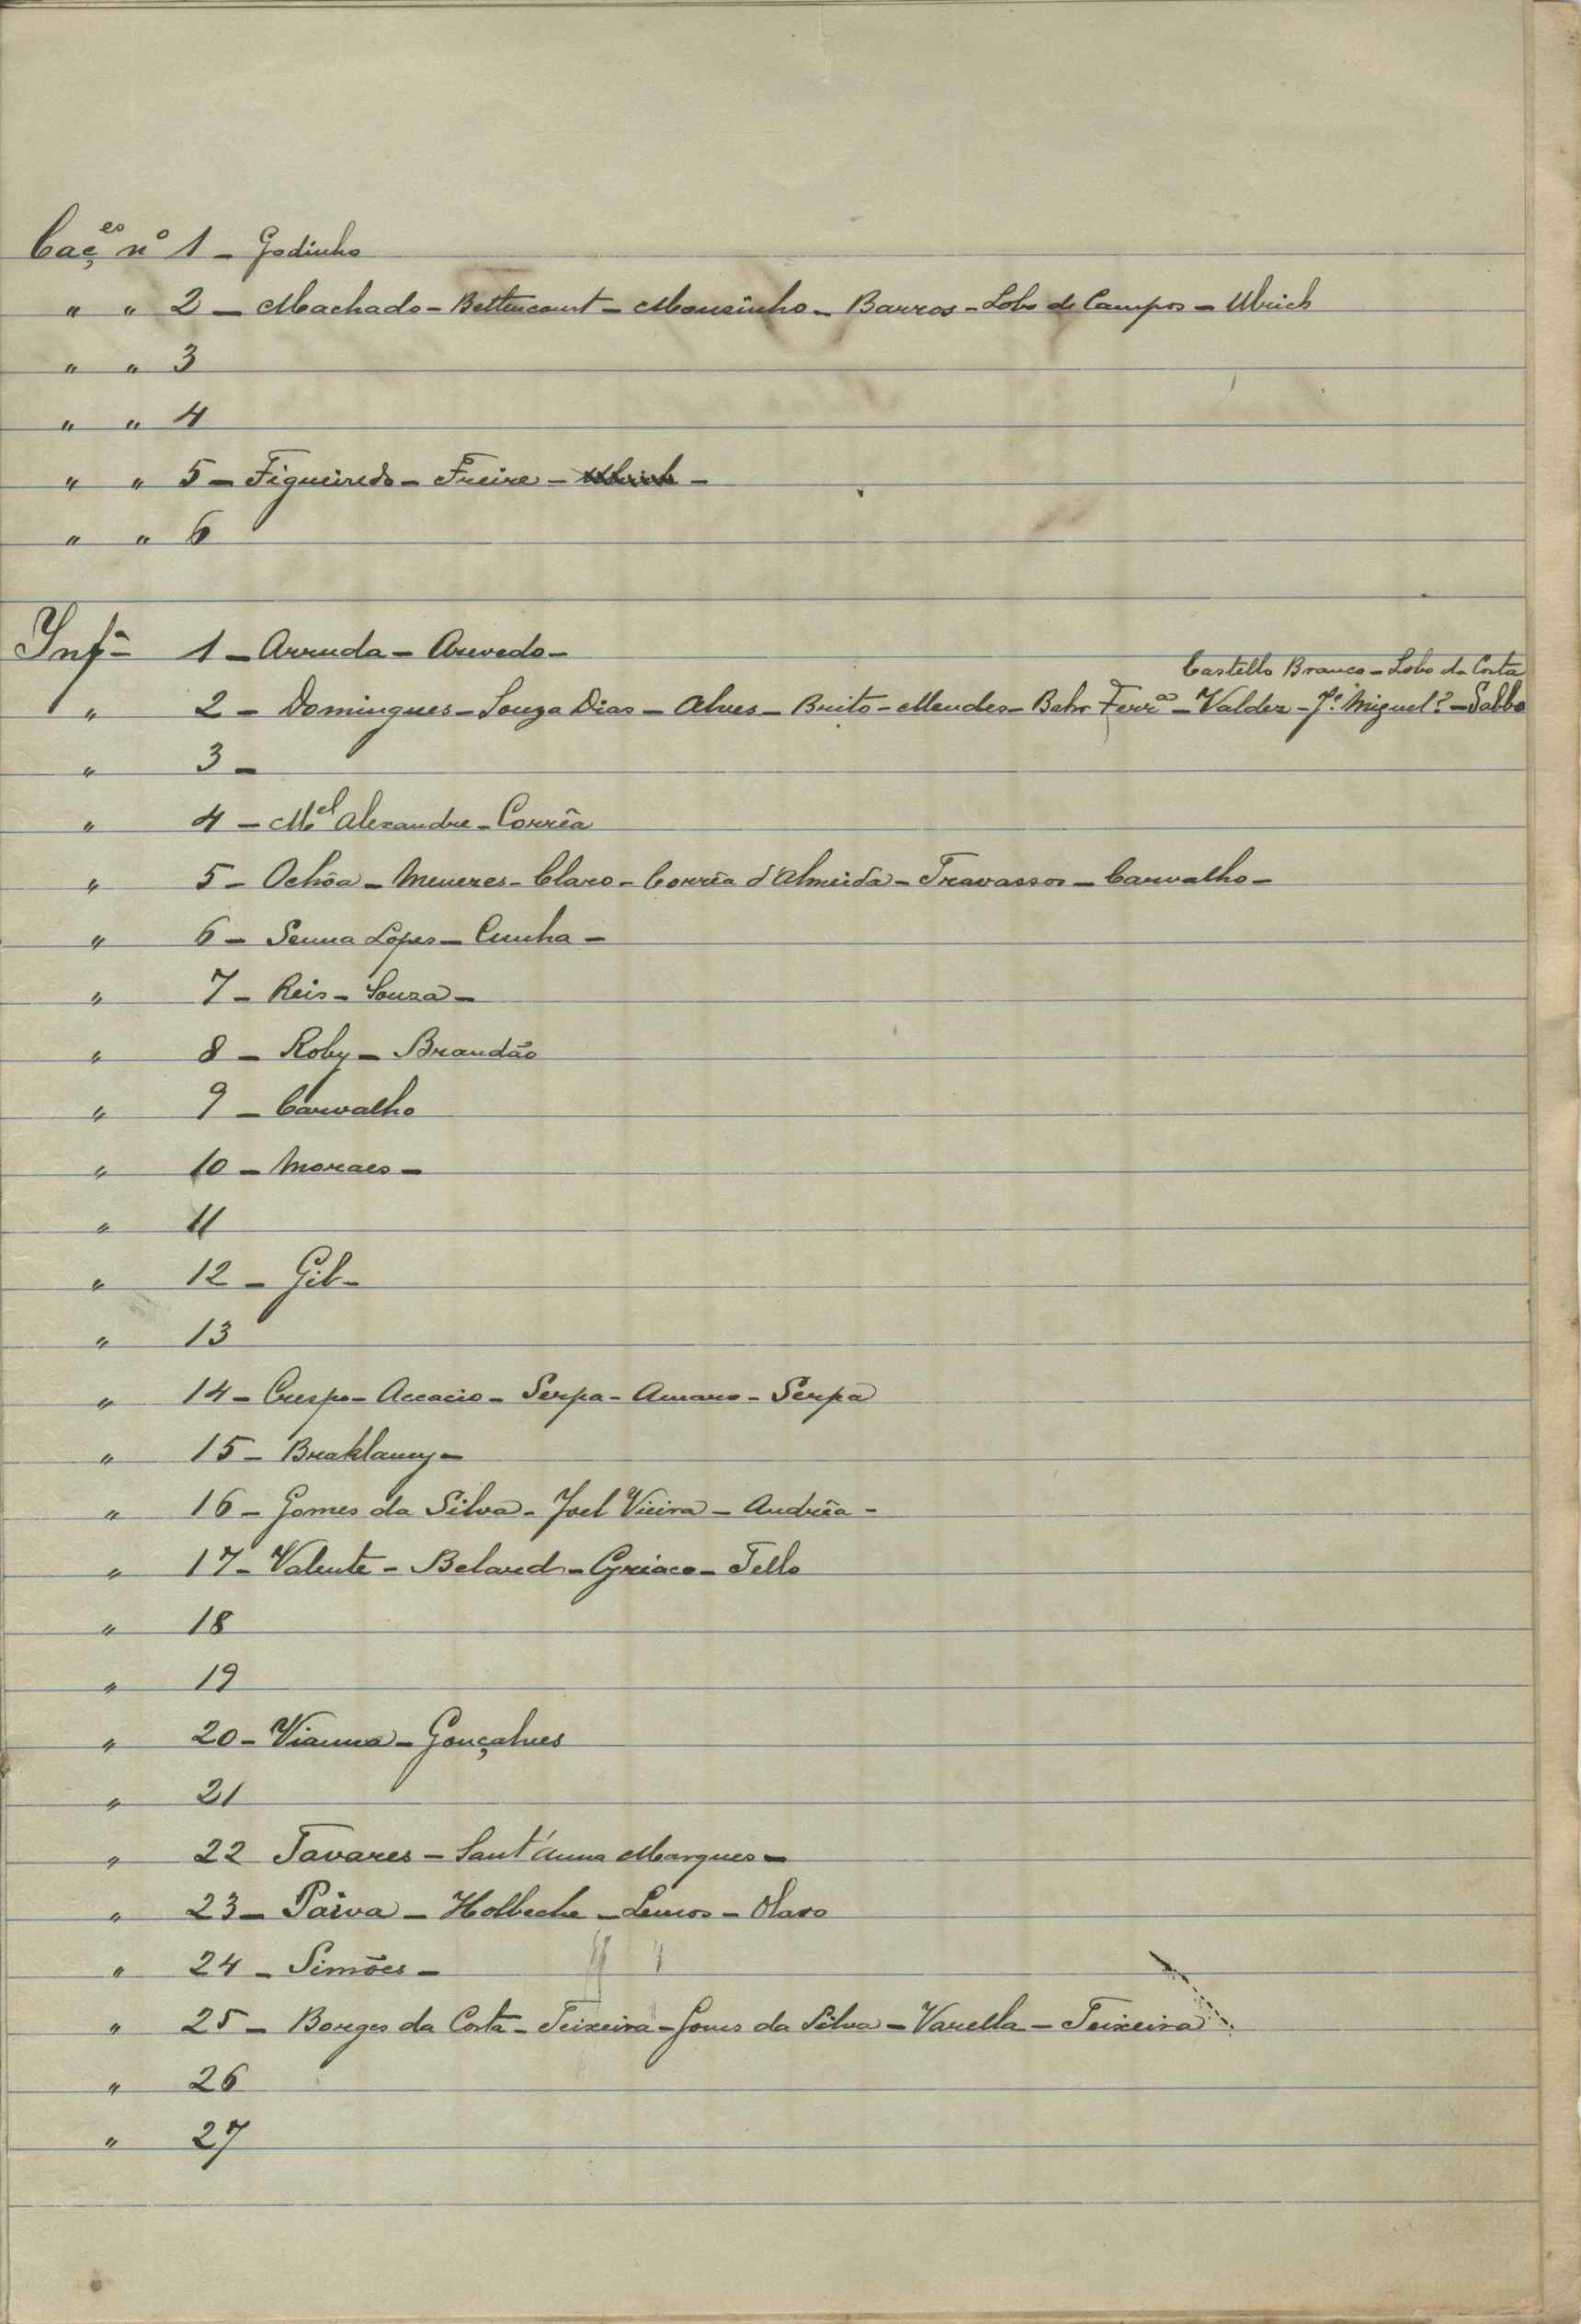 Caç.es nº 1 - Godinho
" " 2 - Machado - Bettencourt - Mousinho - Barros - Lobo de Campos - Ulrich
" " 3
" " 4
" " 5 - Figueiredo - Freire - Ulrich -
" " 6
Infª 1 - Arruda - Azevedo -
Castello Branco - Lobo da Costa
" 2 - Domingues - Souza Dias - Alves - Brito - Mendes - Bahr Ferrªˢ - Valdez - Jº Miguel? - Sabbo
" 3 -
" 4 - Mel Alexandre - Corrêa
" 5 - Ochôa - Menezes - Claro - Corrêa d'Almeida - Travassos - Carvalho -
" 6 - Senna Lopes - Cunha -
" 7 - Reis - Souza -
" 8 - Roby - Brandão
" 9 - Carvalho
" 10 - Moraes -
" 11
" 12 - Gil -
" 13
" 14 - Crespo - Accacio - Serpa - Amaro - Serpa
" 15 - Braklamy -
" 16 - Gomes da Silva - Joel Vieira - Andrêa -
" 17 - Valente - Belard - Cyriaco - Tello
" 18
" 19
" 20 - Vianna - Gonçalves
" 21
" 22 Tavares - Sant'Anna Marques -
" 23 - Paiva - Holbeche - Lemos - Olavo
" 24 - Simões -
" 25 - Borges da Costa - Teixeira - Gomes da Silva - Varella - Teixeira
" 26
" 27